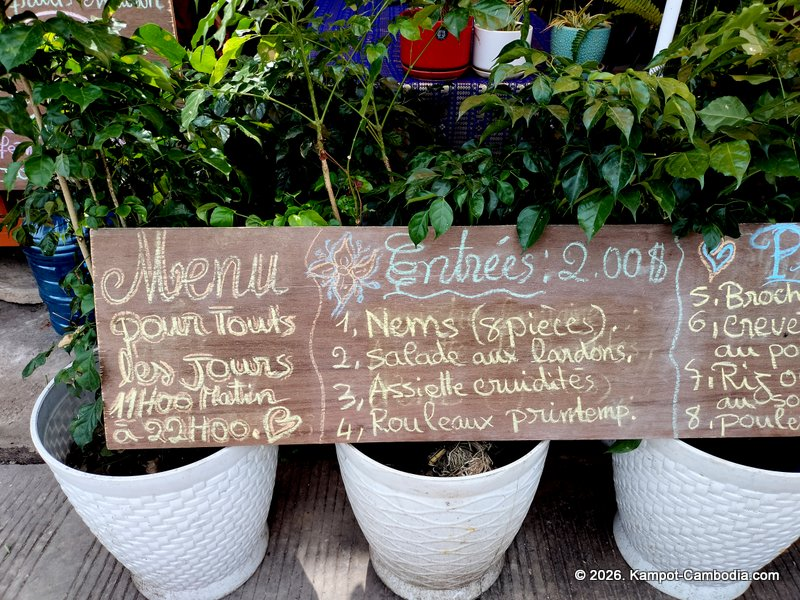 Menu
pour Touts
les Jours
11H00 Matin
à 22H00.
Entrées: 2.00$
1, Nems (8 pièces).
2, Salade aux lardons.
3, Assiette cruidités
4, Rouleaux printemp.
5. Broch
6, Creve
au po
7, Riz
au so
8, poule
© 2026. Kampot-Cambodia.com